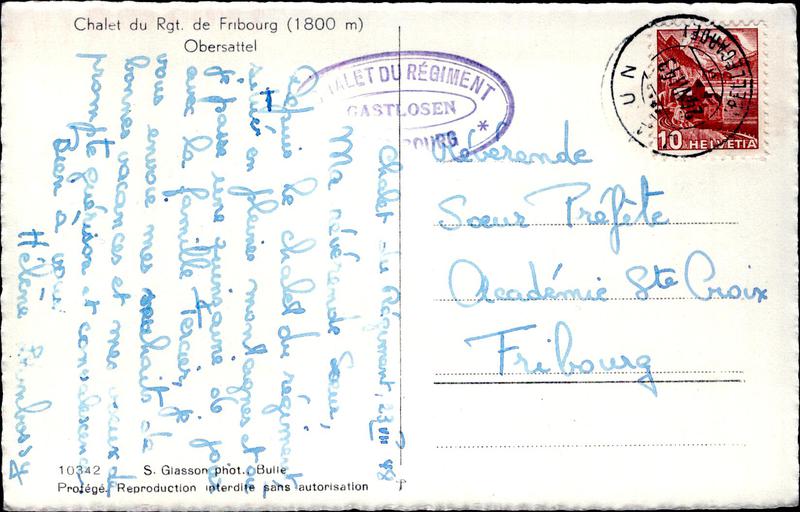 Chalet du Rgt. de Fribourg (1800 m)
Obersattel
CHALET DU RÉGIMENT
GASTLOSEN
BOURG *
10 HELVETIA
Chalet du Régiment, 23 VII 48
Ma révérende Sœur,
Depuis le chalet du régiment,
situé en pleine montagnes et où
je passe une quinzaine de jours
avec la famille Tercier, je
vous envoie mes souhaits de
bonnes vacances et mes vœux de
prompte guérison et convalescence
Bien à vous
Hélène
Révérende
Sœur Préfète
Académie Ste Croix
Fribourg
10342 S. Glasson phot., Bulle
Protégé. Reproduction interdite sans autorisation